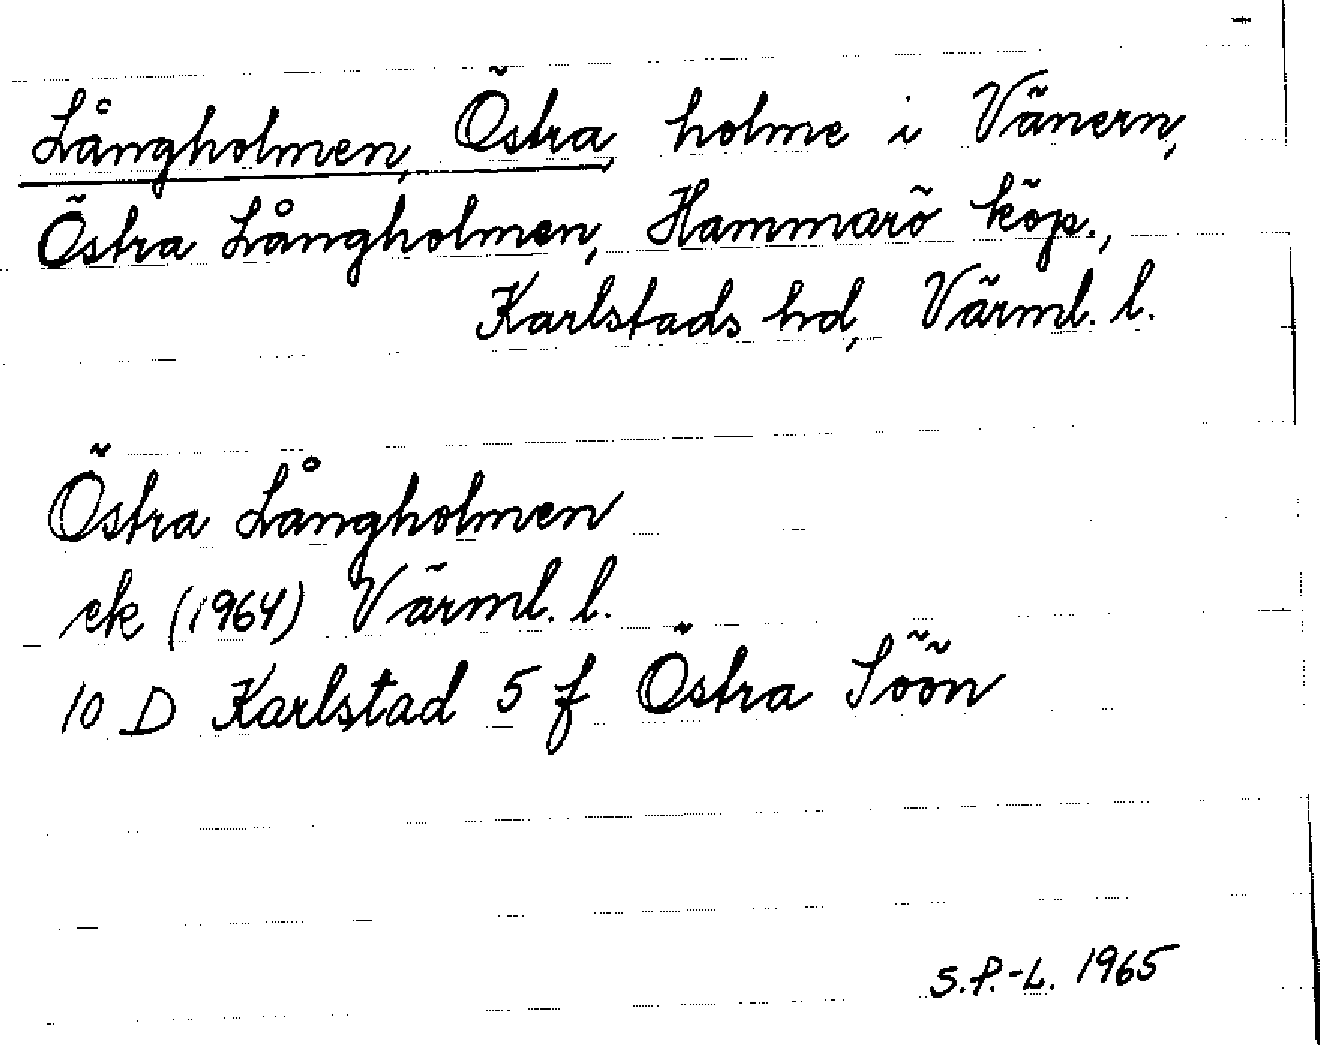 Långholmen, Östra, holme i Vänern,
Östra Långholmen, Hammarö köp.,
Karlstads hd, Värml. l.
Östra Långholmen
ek (1964) Värml. l.
10 D Karlstad 5 f Östra Söön
S.P.-L. 1965